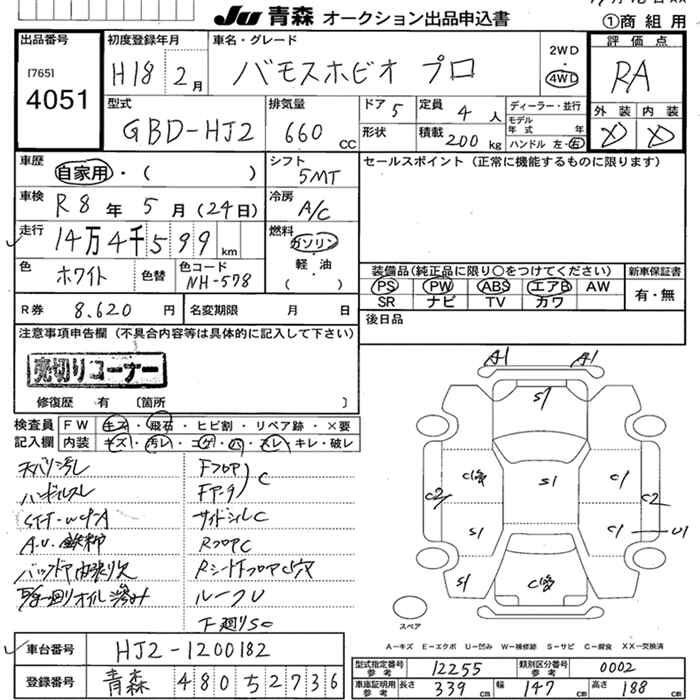 Ju 青森 オークション出品申込書
①商組用
出品番号
[765]
4051
初度登録年月
H18 2月
車名・グレード
バモスホビオ プロ
2WD
4WD
評価点
RA
型式
GBD-HJ2
排気量
660 CC
ドア 5
定員 4 人
形状
積載 200 kg
ディーラー・並行
モデル年式 年
ハンドル 左・右
外装 内装
D D
車歴
自家用・( )
シフト
5MT
セールスポイント(正常に機能するものに限ります)
車検
R8年5月(24日)
冷房
A/C
走行
14万4千599km
燃料
ガソリン
軽・油
( )
色
ホワイト
色替
色コード
NH-578
装備品(純正品に限り○をつけてください)
新車保証書
PS PW ABS エアB AW
SR ナビ TV カワ
有・無
R券 8,620 円
名変期限 月 日
後日品
注意事項申告欄(不具合内容等は具体的に記入して下さい)
売切りコーナー
修復歴 有 [箇所 ]
検査員記入欄
FW キズ・飛石・ヒビ割・リペア跡・×要
内装 キズ・汚レ・コゲ・穴・スレ・キレ・破レ
天バリ汚レ
ハンドルスレ
A.U.鉄粉
バックドア内張り欠
Fフロア
C
サイドシルC
RフロアC
ルーフU
F廻りSC
A1 A1
S1
C2
S1
C1
C2
S1
C1
U1
S1
スペア
A－キズ E－エクボ U－凹み W－補修跡 S－サビ C－腐食 XX－交換済
車台番号
HJ2-1200182
登録番号
青森 480ち2736
型式指定番号 参考 12255
類別区分番号 参考 0002
車庫証明用 参考 長さ 339 cm 幅 147 cm 高さ 188 cm